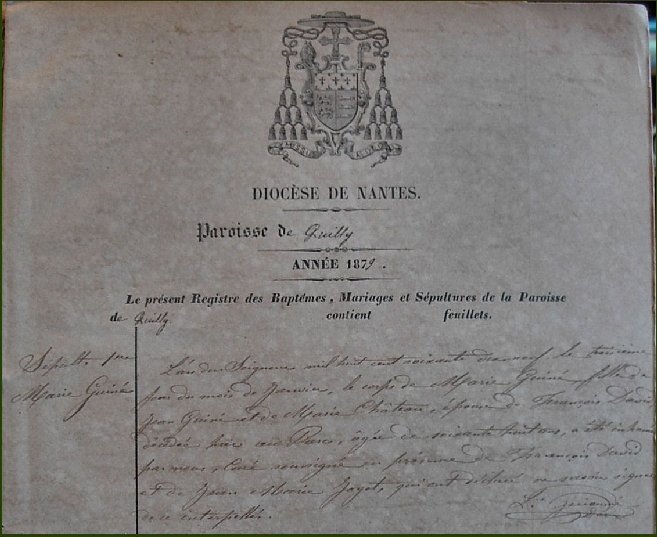 DIOCÈSE DE NANTES.
Paroisse de Quilly
ANNÉE 1879.
Le présent Registre des Baptêmes, Mariages et Sépultures de la Paroisse
de Quilly contient feuillets.
Marie Guiné
L'an du Seigneur mil huit cent soixante dix neuf le troisième
jour du mois de Janvier, le corps de Marie Guiné fille de
Jean Guiné et de Marie Château, épouse de François David
décédée hier au âgée de soixante huit ans, a été inhumé
par nous, soussigné en présence de François David
et de Jean Marie qui ont déclaré ne savoir signer
de ce interpellés.